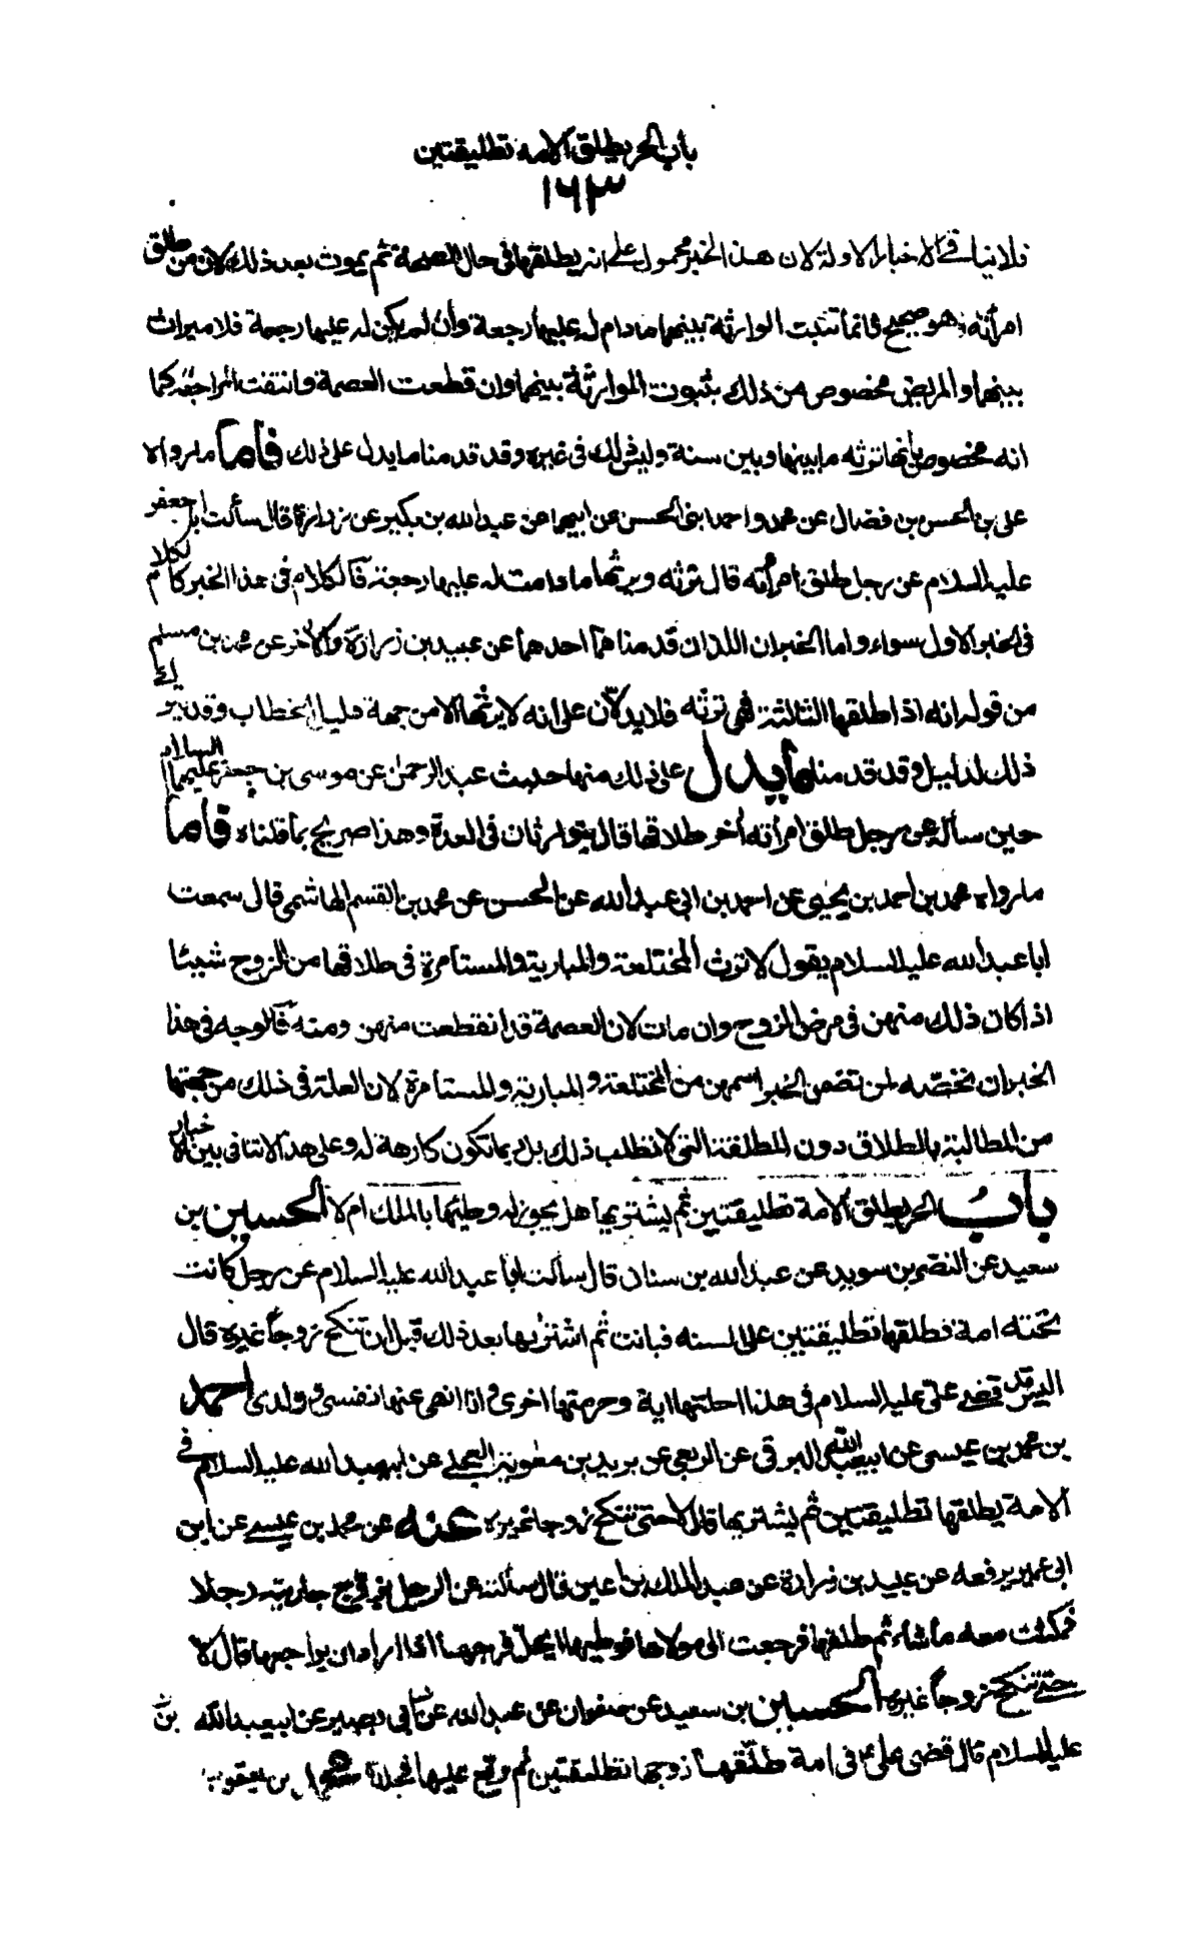 باب الحر يطلق الامة تطليقتين
١٦٣
فلا ينافي الاخبار الاولة لان هذا الخبر محمول على انه يطلقها في حال الصحة ثم يموت بعد ذلك لان من طلق
امرأته وهو صحيح فانما تثبت الموارثة بينهما ما دام له عليها رجعة وان لم يكن له عليها رجعة فلا ميراث
بينهما والمريض مخصوص من ذلك بثبوت الموارثة بينهما وان قطعت العصمة وانتفت المراجعة كما
انه مخصوص بانها ترثه ما بينها وبين سنة وليس ذلك في غيره وقد قدمنا ما يدل على ذلك فأما ما رواه
علي بن الحسن بن فضال عن محمد واحمد ابني الحسن عن ابيهما عن عبد الله بن بكير عن زرارة قال سألت ابا جعفر
عليه السلام عن رجل طلق امرأته قال ترثه ويرثها ما دامت له عليها رجعة فالكلام في هذا الخبر كالكلام
في الخبر الاول سواء واما الخبران اللذان قدمناهما احدهما عن عبيد بن زرارة والاخر عن محمد بن مسلم
من قوله انه اذا طلقها الثالثة فهي ترثه فلا يدلان على انه لا يرثها الا من جهة دليل الخطاب وقد يترك
ذلك لدليل وقد قدمنا ما يدل على ذلك منها حديث عبد الرحمن عن موسى بن جعفر عليهما السلام
حين سأله عن رجل طلق امرأته آخر طلاقها قال يتوارثان في العدة وهذا صريح بما قلناه فأما
ما رواه محمد بن احمد بن يحيى عن احمد بن ابي عبد الله عن الحسن عن محمد بن القسم الهاشمي قال سمعت
ابا عبد الله عليه السلام يقول لا ترث المختلعة والمبارية والمستأمرة في طلاقها من الزوج شيئا
اذا كان ذلك منهن في مرض الزوج وان مات لان العصمة قد انقطعت منهن ومنه فالوجه في هذا
الخبر ان نخصه لمن تضمن الخبر اسمهن من المختلعة والمبارية والمستأمرة لان العلة في ذلك من جهتها
من المطالبة بالطلاق دون المطلقة التي لا تطلب ذلك بل ربما تكون كارهة له وعلى هذا لا تنافي بين الاخبار
باب الحر يطلق الامة تطليقتين ثم يشتريها هل يجوز له وطيئها بالملك ام لا الحسين بن
سعيد عن النضر بن سويد عن عبد الله بن سنان قال سألت ابا عبد الله عليه السلام عن رجل كانت
تحته امة فطلقها تطليقتين على السنه فبانت ثم اشتريها بعد ذلك قبل ان تنكح زوجاً غيره قال
اليس قد قضى علي عليه السلام في هذا احلتها اية وحرمتها اخرى وانا انهى عنها نفسي وولدي احمد
بن محمد بن عيسى عن ابي عبد الله البرقي عن الربعي عن بريد بن معوية العجلي عن ابي عبد الله عليه السلام في
الامة يطلقها تطليقتين ثم يشتريها قال لا حتى تنكح زوجا غيره عنه عن محمد بن عيسى عن ابن
ابي عمير يرفعه عن عبيد بن زرارة عن عبد الملك بن اعين قال سألته عن الرجل زوج جاريته رجلا
فمكثت معه ما شاء ثم طلقها فرجعت الى مولاها فوطيها ايحل فرجها اذا اراد ان يراجعها قال لا
حتى تنكح زوجاً غيره الحسين بن سعيد عن صفوان عن عبد الله عن ابي بصير عن ابي عبد الله
عليه السلام قال قضى علي في امة طلقها زوجها تطليقتين ثم وقع عليها فجلده محمد بن يعقوب